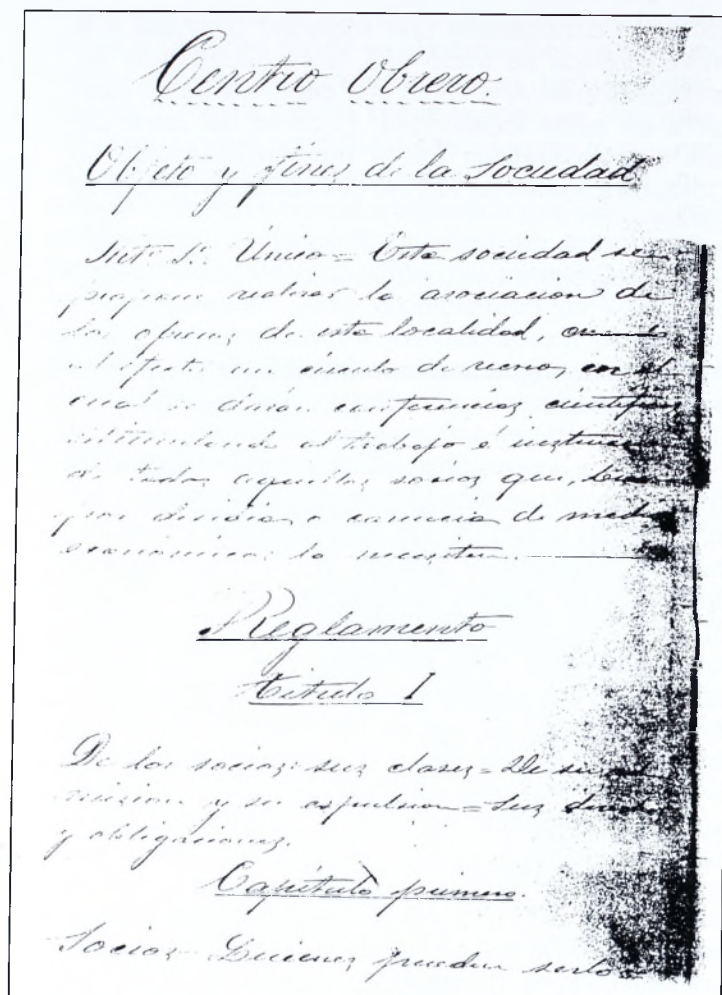 Centro Obrero.
Objeto y fines de la Sociedad
Art. 1º. Único = Esta sociedad se
propone realizar la asociacion de
los obreros de esta localidad,
al efecto un círculo de recreo, en el
cual se darán conferencias científicas
al trabajo é
todos aquellos socios que,
carencia de
económicos lo necesiten.
Reglamento
Título I
De los socios: sus clases = De su ad-
mision y su espulsion = Sus
y obligaciones.
Capítulo primero.
Socios - Quienes pueden serlo